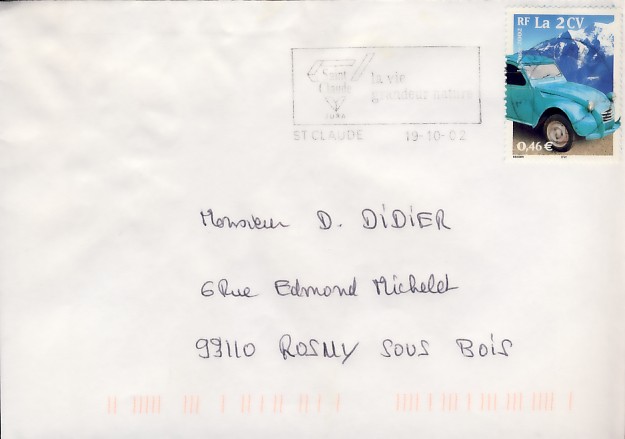 RF La 2 CV
Saint Claude
JURA
la vie
grandeur nature
ST CLAUDE 19-10-02
0,46 €
Monsieur D. DIDIER
6 Rue Edmond Michelet
93110 ROSNY SOUS BOIS